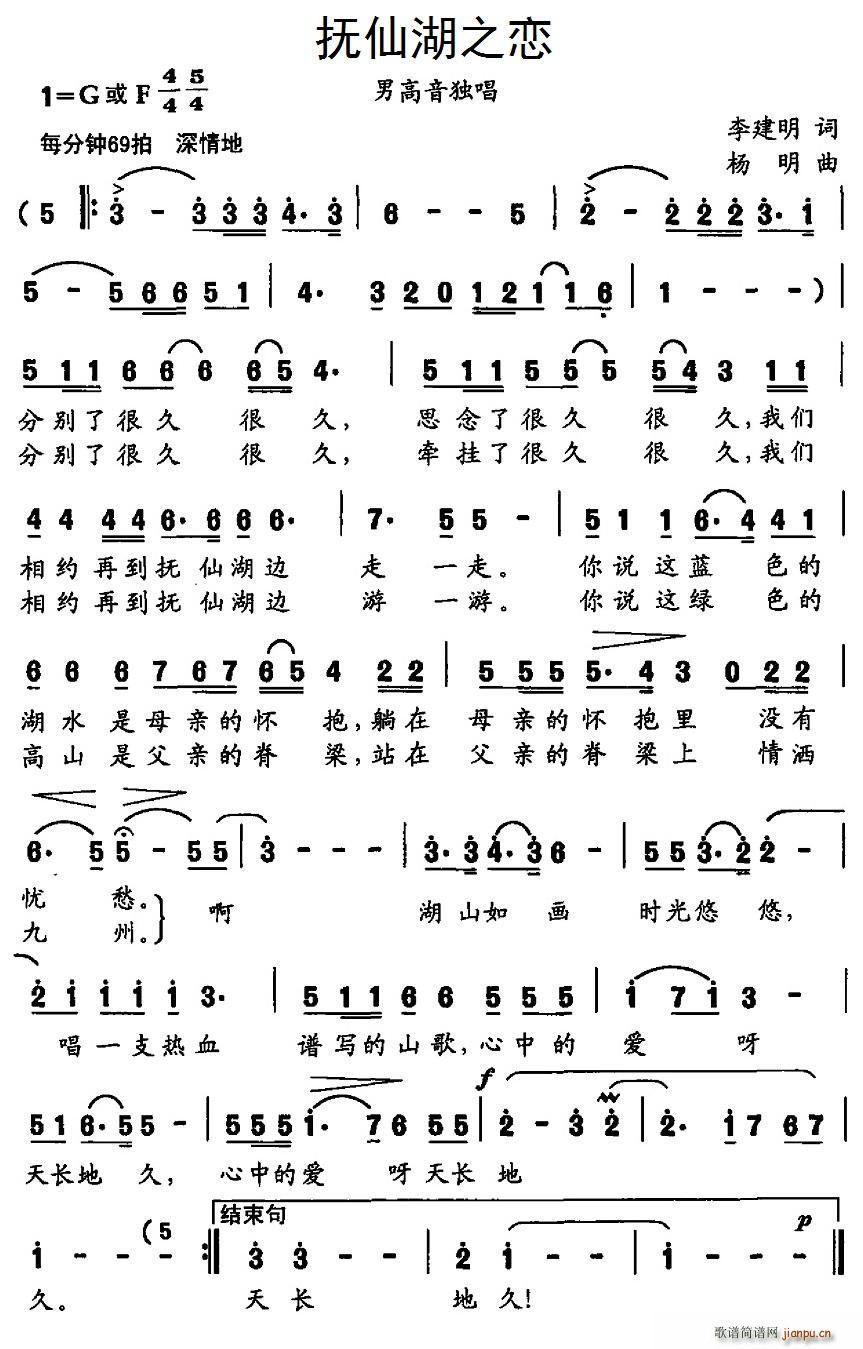 抚仙湖之恋
1=G或F 4/4 5/4 男高音独唱
李建明 词
每分钟69拍 深情地
杨 明 曲
( 5 ‖: 3 - 3 3 3 4· 3 | 6 - - 5 | 2 - 2 2 2 3· 1 |
5 - 5 6 6 5 1 | 4· 3 2 0 1 2 1 1 6 | 1 - - - ) |
5 1 1 6 6 6 6 5 4· | 5 1 1 5 5 5 5 4 3 1 1 |
分别了很久 很 久, 思念了很久 很 久,我们
分别了很久 很 久, 牵挂了很久 很 久,我们
4 4 4 4 6· 6 6 6· | 7· 5 5 - | 5 1 1 6· 4 4 1 |
相约再到抚仙湖边 走 一走。 你说这蓝 色的
相约再到抚仙湖边 游 一游。 你说这绿 色的
6 6 6 7 6 7 6 5 4 2 2 | 5 5 5 5· 4 3 0 2 2 |
湖水是母亲的怀 抱,躺在 母亲的怀抱里 没有
高山是父亲的脊 梁,站在 父亲的脊梁上 情洒
6· 5 5 - 5 5 | 3 - - - | 3· 3 4· 3 6 - | 5 5 3· 2 2 - |
忧 愁。 啊 湖山如 画 时光悠 悠,
九 州。
2 1 1 1 1 3· | 5 1 1 6 6 5 5 5 | 1 7 1 3 - |
唱一支热血 谱写的山歌,心中的 爱 呀
f
5 1 6· 5 5 - | 5 5 5 1· 7 6 5 5 | 2 - 3 2 | 2· 1 7 6 7 |
天长地 久, 心中的爱 呀天长 地
结束句
p
1 - - - (5 :‖ 3 3 - - | 2 1 - - | 1 - - - ‖
久。 天长 地久!
歌谱简谱网
jianpu.cn